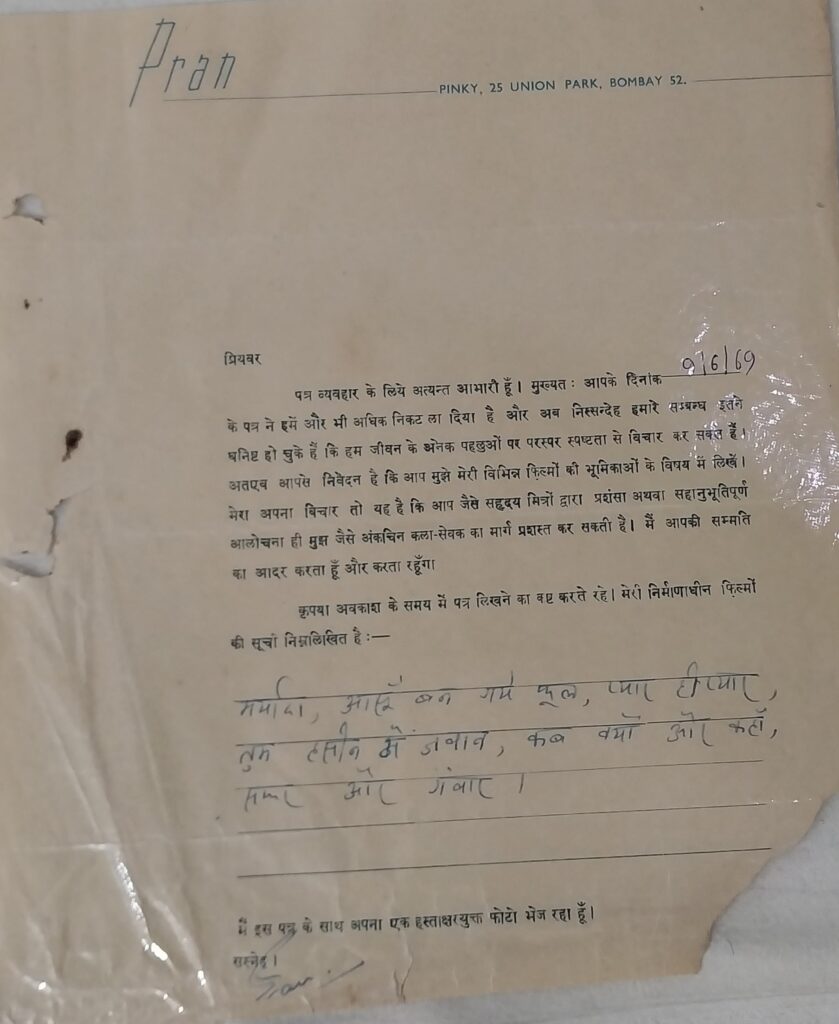 Pran
PINKY, 25 UNION PARK, BOMBAY 52.
प्रियवर
पत्र व्यवहार के लिये अत्यन्त आभारी हूँ। मुख्यतः आपके दिनांक 9/6/69
के पत्र ने हमें और भी अधिक निकट ला दिया है और अब निस्सन्देह हमारे सम्बन्ध इतने
घनिष्ट हो चुके हैं कि हम जीवन के अनेक पहलुओं पर परस्पर स्पष्टता से विचार कर सकते हैं।
अतएव आपसे निवेदन है कि आप मुझे मेरी विभिन्न फ़िल्मों की भूमिकाओं के विषय में लिखें।
मेरा अपना विचार तो यह है कि आप जैसे सहृदय मित्रों द्वारा प्रशंसा अथवा सहानुभूतिपूर्ण
आलोचना ही मुझ जैसे अंकचिन कला-सेवक का मार्ग प्रशस्त कर सकती है। मैं आपकी सम्मति
का आदर करता हूँ और करता रहूँगा
कृपया अवकाश के समय में पत्र लिखने का कष्ट करते रहे। मेरी निर्माणाधीन फ़िल्मों
की सूची निम्नलिखित है :—
मर्यादा, आंसू बन गये फूल, प्यार ही प्यार,
तुम हसीन मैं जवान, कब क्यों और कहाँ,
और गंवार।
मैं इस पत्र के साथ अपना एक हस्ताक्षरयुक्त फोटो भेज रहा हूँ।
सस्नेह।